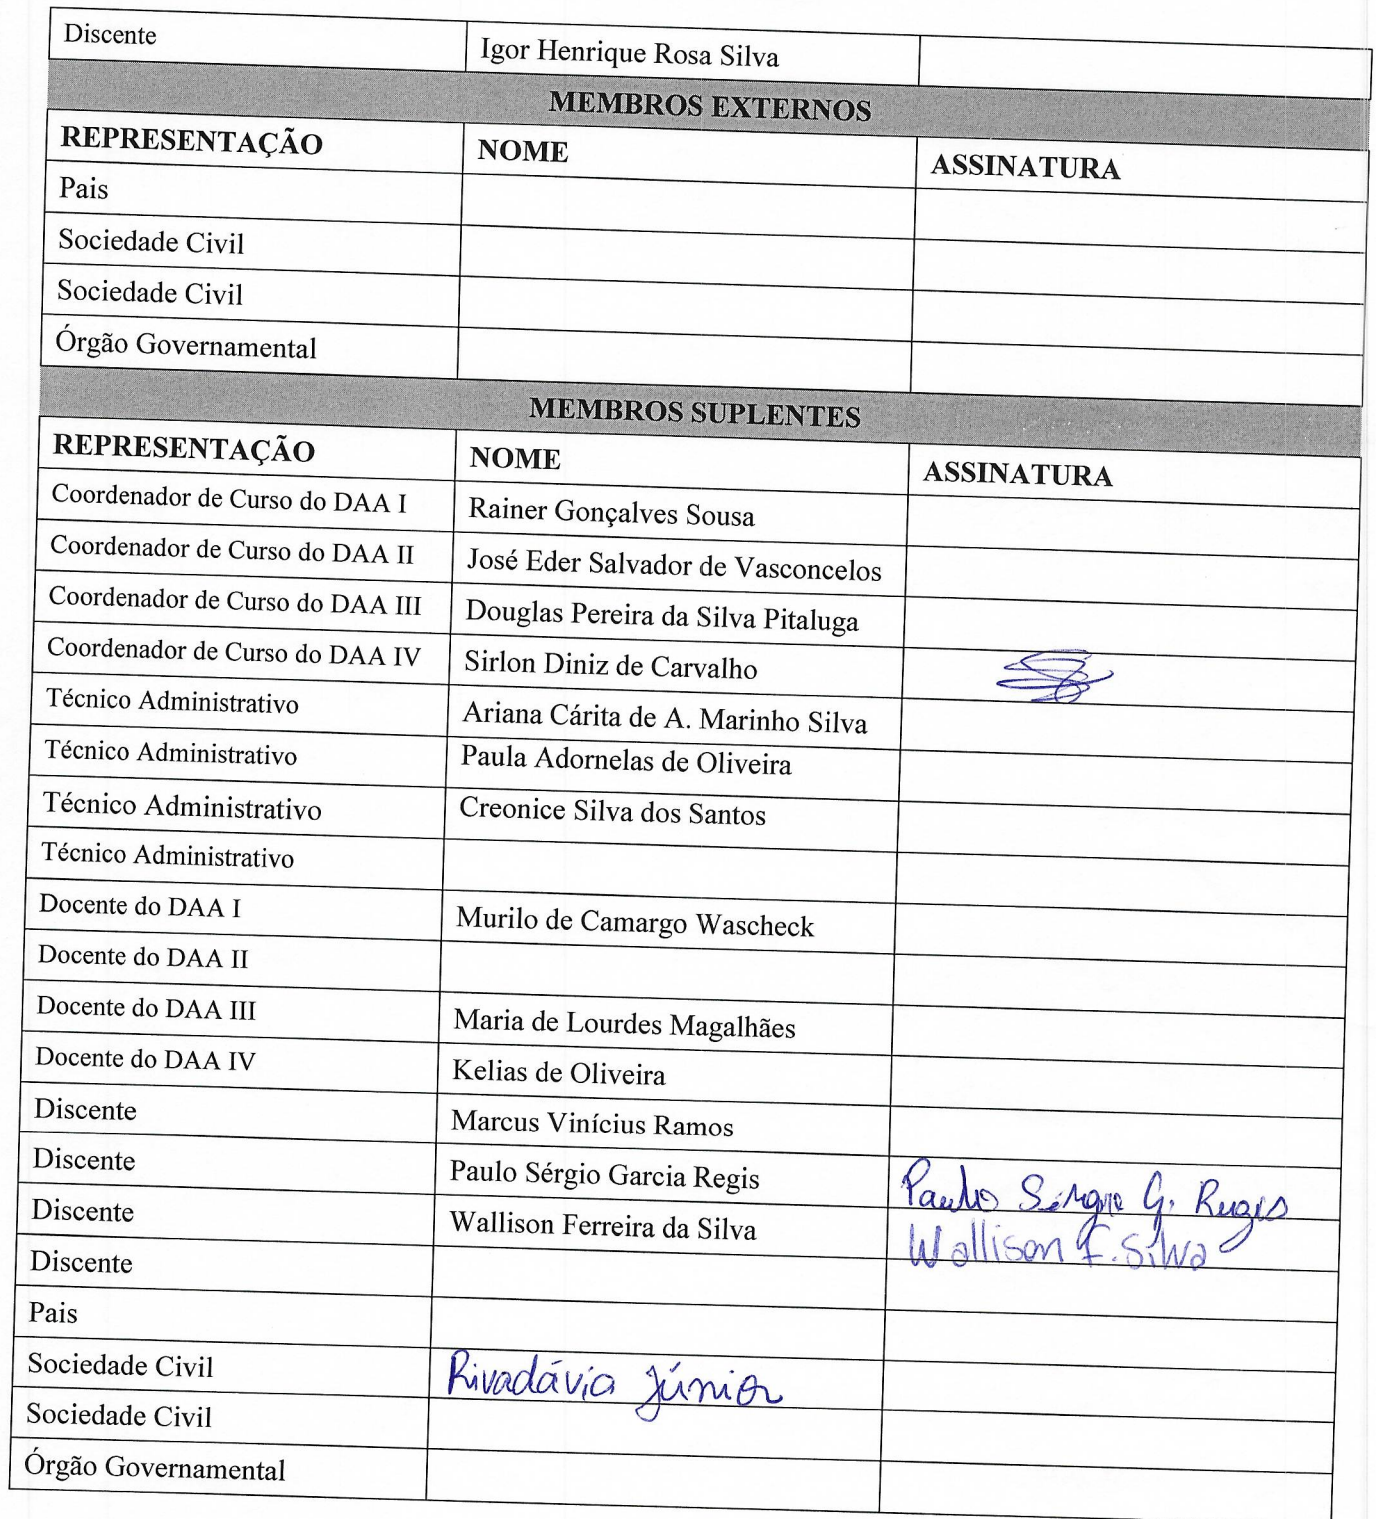 Discente Igor Henrique Rosa Silva
MEMBROS EXTERNOS
REPRESENTAÇÃO NOME ASSINATURA
Pais
Sociedade Civil
Sociedade Civil
Órgão Governamental
MEMBROS SUPLENTES
REPRESENTAÇÃO NOME ASSINATURA
Coordenador de Curso do DAA I Rainer Gonçalves Sousa
Coordenador de Curso do DAA II José Eder Salvador de Vasconcelos
Coordenador de Curso do DAA III Douglas Pereira da Silva Pitaluga
Coordenador de Curso do DAA IV Sirlon Diniz de Carvalho
Técnico Administrativo Ariana Cárita de A. Marinho Silva
Técnico Administrativo Paula Adornelas de Oliveira
Técnico Administrativo Creonice Silva dos Santos
Técnico Administrativo
Docente do DAA I Murilo de Camargo Wascheck
Docente do DAA II
Docente do DAA III Maria de Lourdes Magalhães
Docente do DAA IV Kelias de Oliveira
Discente Marcus Vinícius Ramos
Discente Paulo Sérgio Garcia Regis Paulo Sérgio G. Regis
Discente Wallison Ferreira da Silva Wallison F. Silva
Discente
Pais
Sociedade Civil Rivadávia Júnior
Sociedade Civil
Órgão Governamental